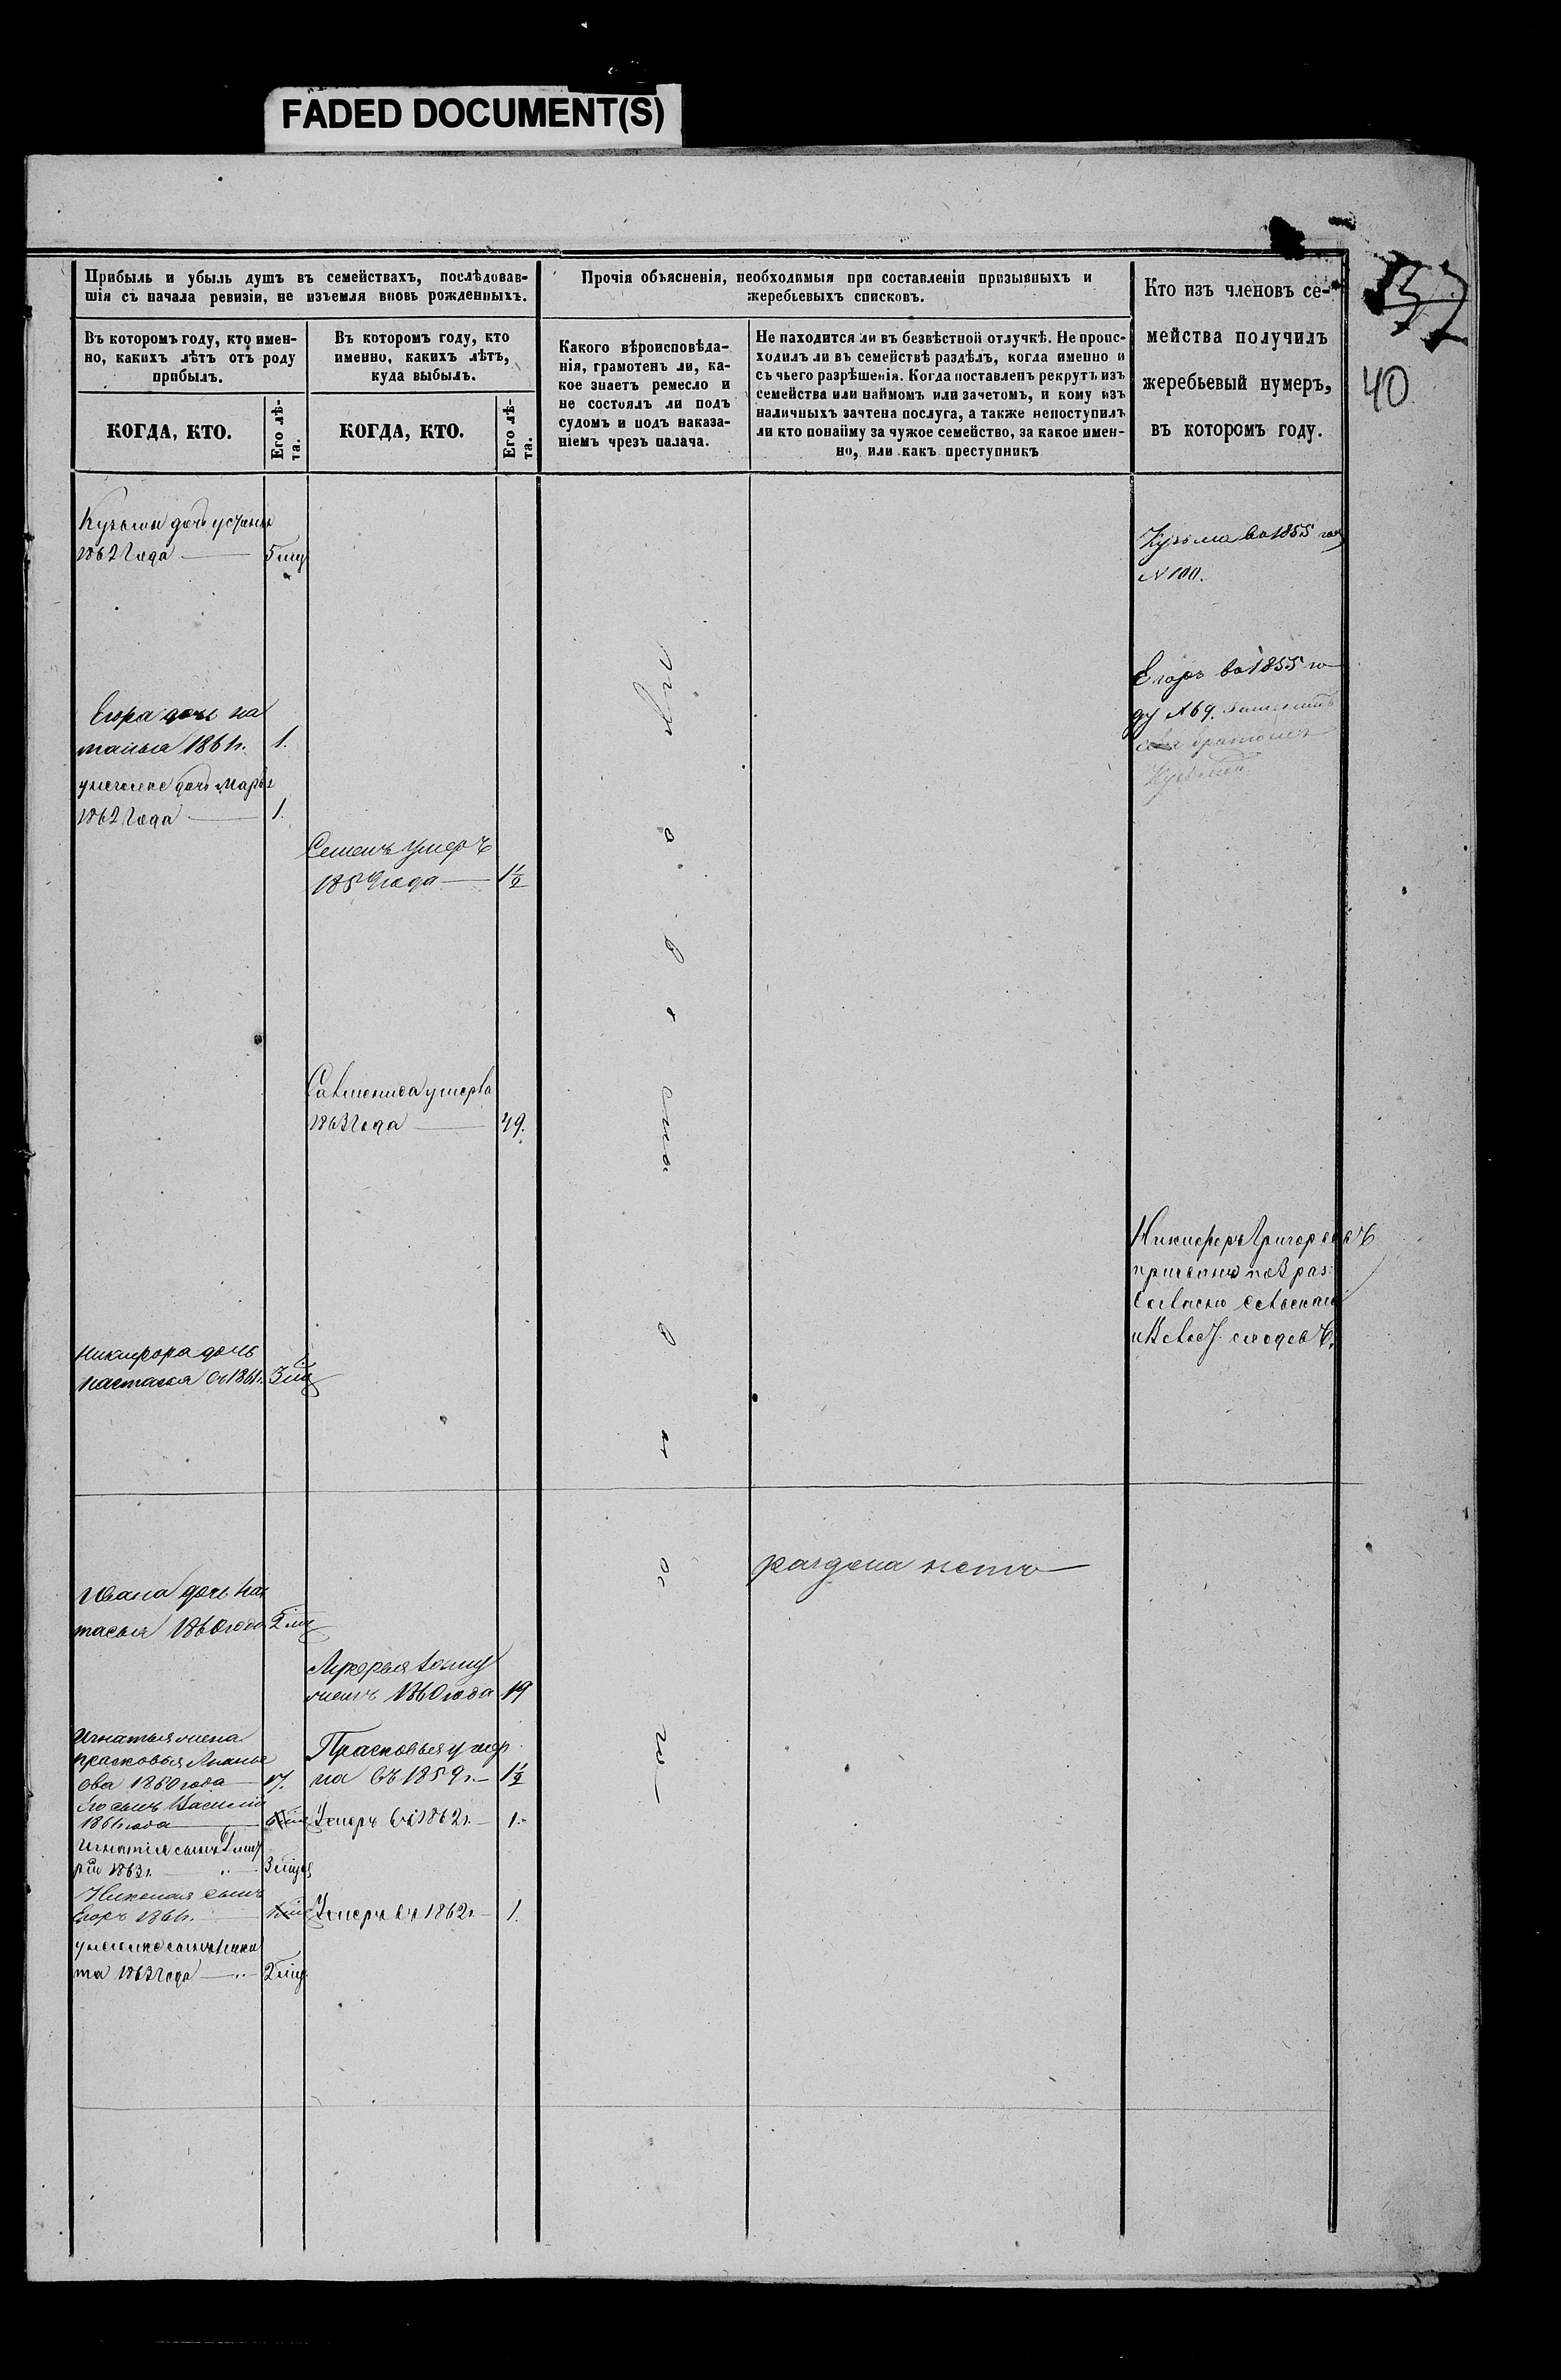 FADED DOCUMENT(S)
Прибыль и убыль душъ въ семействахъ, послѣдовав-
шія съ начала ревизіи, не изъемля вновь рожденныхъ.
Прочія объясненія, необходимыя при составленіи призывныхъ и
жеребьевыхъ списковъ.
Кто изъ членовъ се-
мейства получилъ
жеребьевый нумеръ,
въ которомъ году.
37
40
Въ которомъ году, кто имен-
но, какихъ лѣтъ отъ роду
прибылъ.
Въ которомъ году, кто
именно, какихъ лѣтъ,
куда выбылъ.
Какого вѣроисповѣда-
нія, грамотенъ ли, ка-
кое знаетъ ремесло и
не состоялъ ли подъ
судомъ и подъ наказа-
ніемъ чрезъ палача.
Не находится ли въ безвѣстной отлучкѣ. Не проис-
ходилъ ли въ семействѣ раздѣлъ, когда именно и
съ чьего разрѣшенія. Когда поставленъ рекрутъ изъ
семейства или наймомъ или зачетомъ, и кому изъ
наличныхъ зачтена послуга, а также непоступилъ
ли кто понайму за чужое семейство, за какое имен-
но, или какъ преступникъ
КОГДА, КТО.
Его лѣ-
та.
КОГДА, КТО.
Его лѣ-
та.
Кузьмы дочь
1862 года 5 мц
Кузьма во 1855 году
N 100.
Егора дочь На
талья 1861 г. 1.
у него же дочь Марья
1862 года 1.
Егоръ во 1855 го
ду N 69.
братомъ
Кузьмой
Семенъ умеръ
1859 года 1½
умерла
1863 года 49.
Никифоръ Григорьевъ
Никифора дочь
Настасья 1861 г. 3 мц
Православнаго
раздела нетъ
Ивана дочь На
тасья 1860 года 2 мц
Лукерья
1860 года 19
Игнатья жена
Прасковья
ова 1860 года 17.
Прасковья умер
ла въ 1859 г. 1½
Его сынъ Василій
1861 года
Умеръ въ 1862 г. 1.
Игнатія сынъ
1863 г. 3 мца
Николая сынъ
Егоръ 1861 г.
Умеръ въ 1862 г. 1.
у него же сынъ Ники
та 1863 года 2 мц